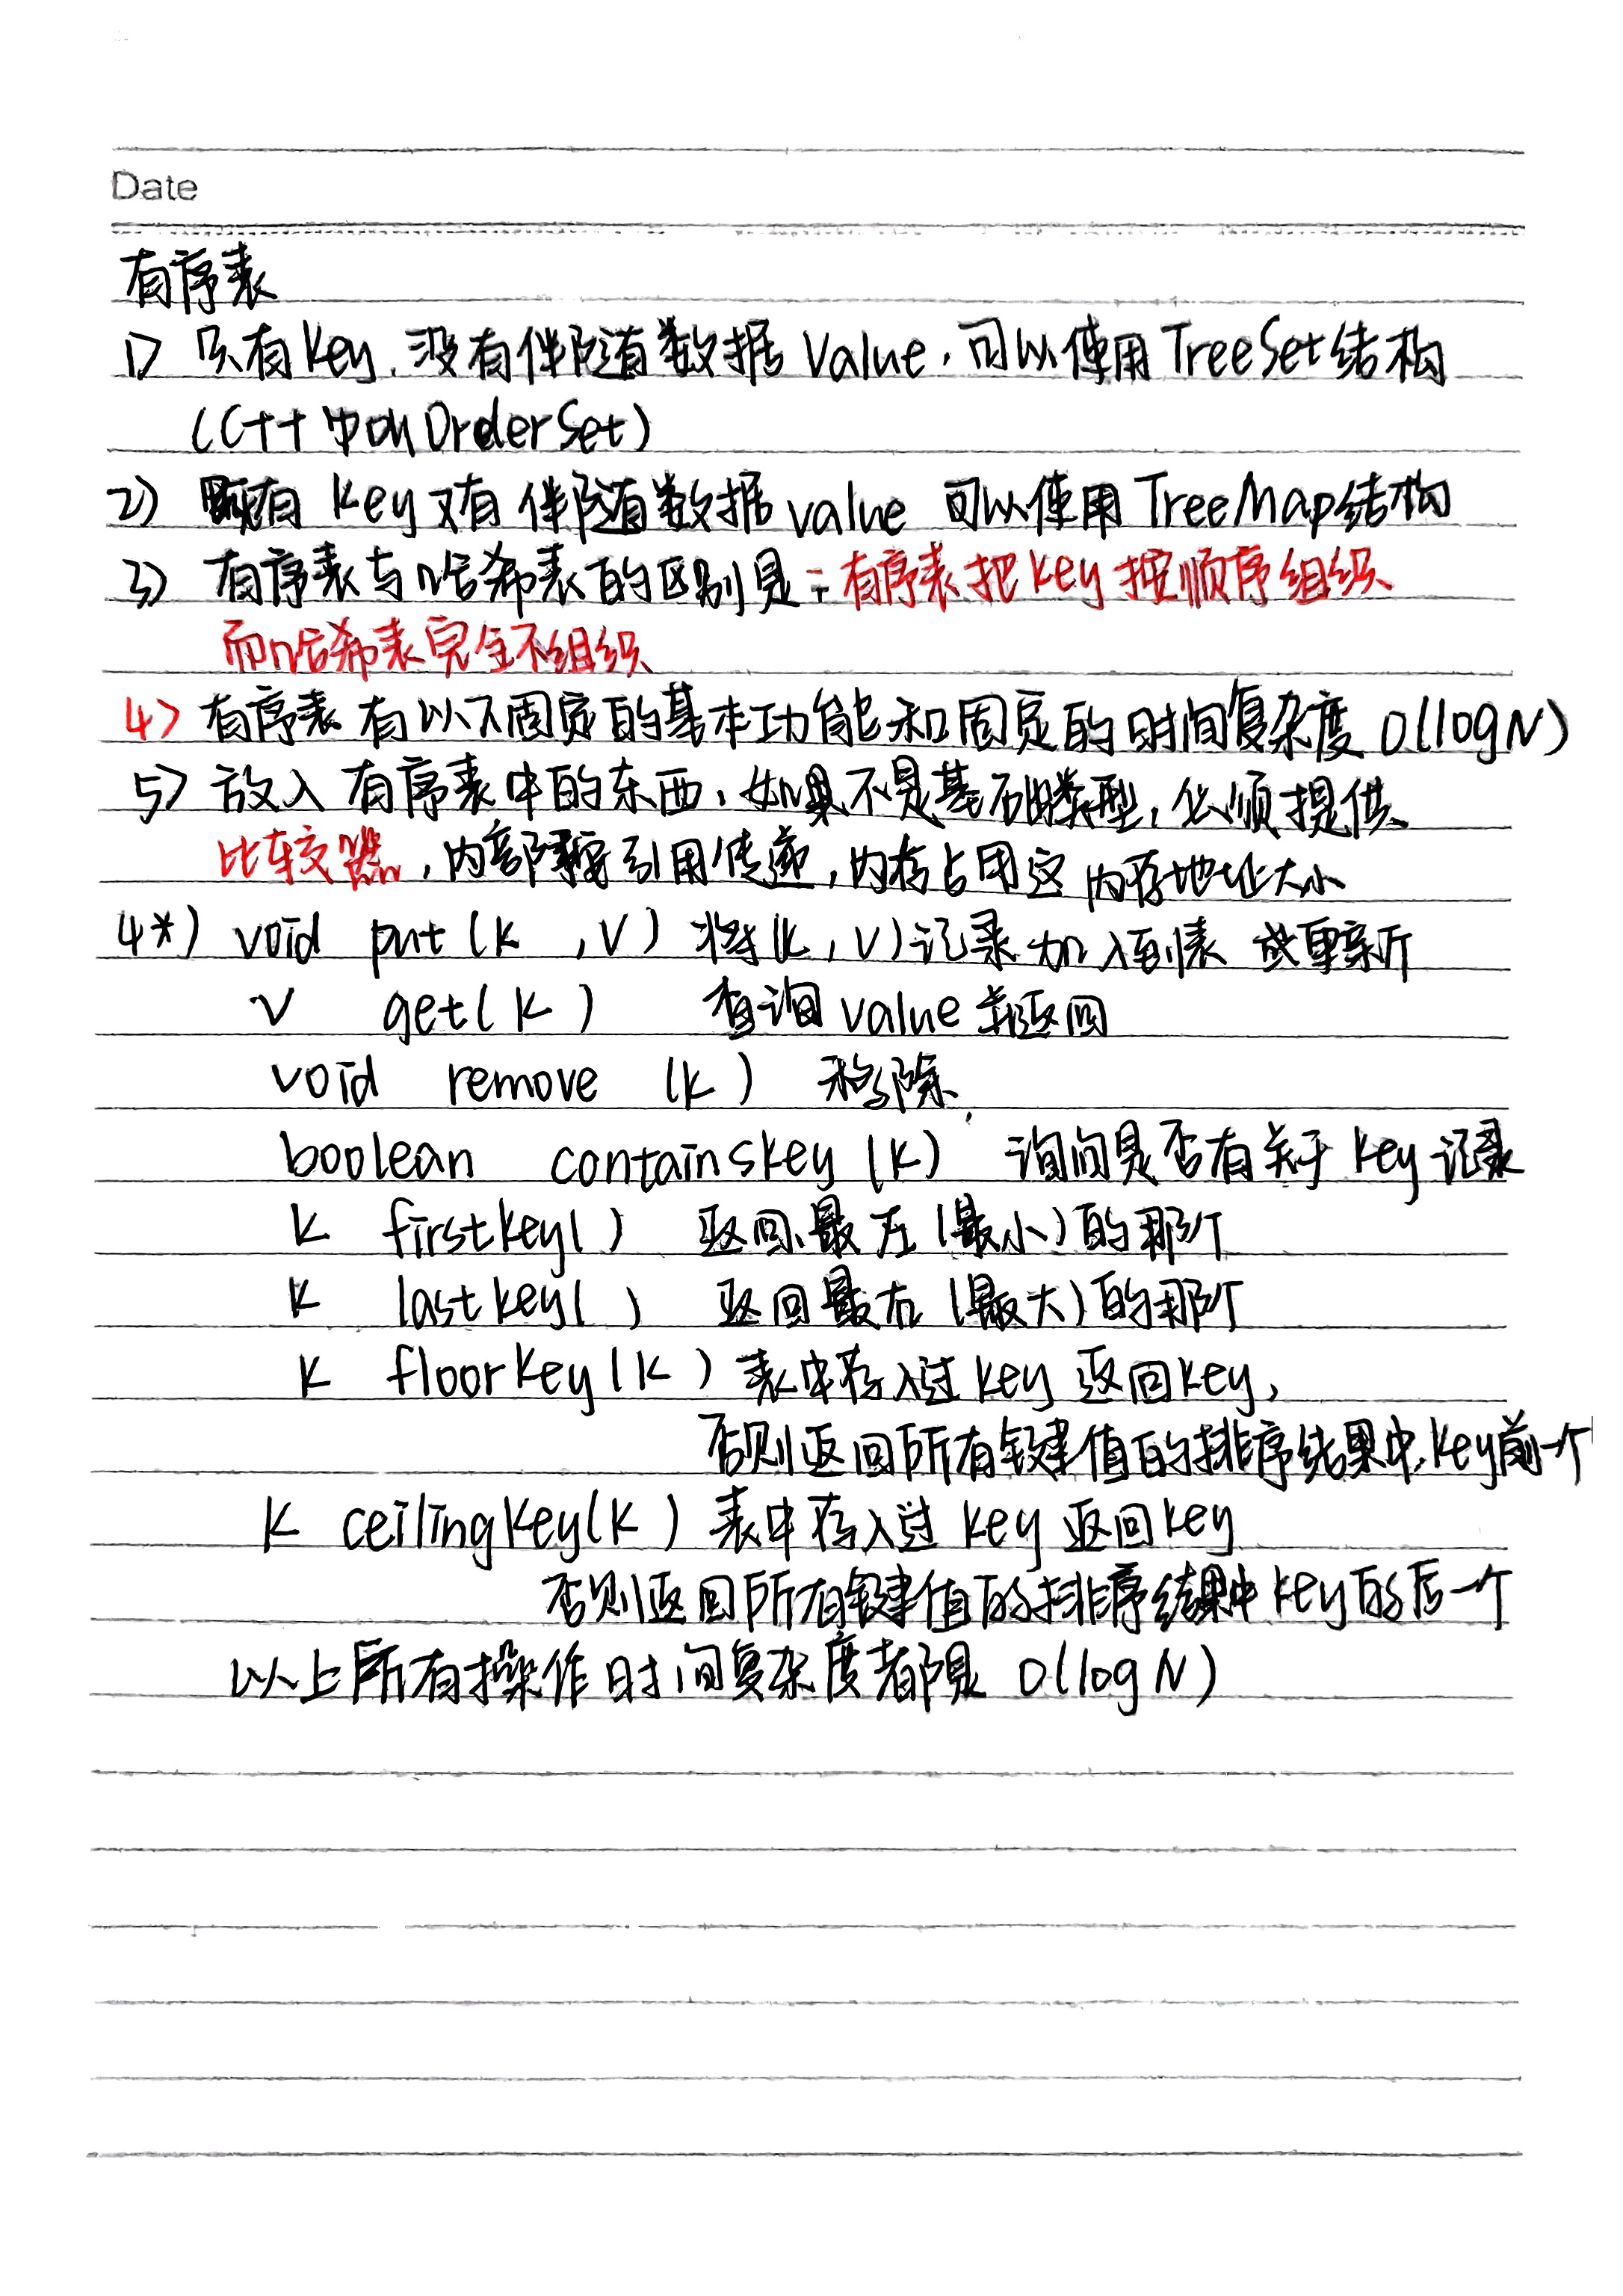 Date
有序表
1) 只有key,没有伴随数据value,可以使用TreeSet结构
(C++中叫OrderSet)
2) 既有key又有伴随数据value 可以使用TreeMap结构
3) 有序表与哈希表的区别是:有序表把key按顺序组织
而哈希表完全不组织
4) 有序表有以下固定的基本功能和固定的时间复杂度O(logN)
5) 放入有序表中的东西,如果不是基础类型,必须提供
比较器,内部 引用传递,内存占用这内存地址大小
4*) void put(k ,V) 将(k,V)记录加入到表 或更新
V get(k) 查询value并返回
void remove (k) 移除
boolean containskey(k) 询问是否有关于key记录
k firstkey() 返回最左(最小)的那个
k lastkey( ) 返回最右(最大)的那个
k floorkey(k) 表中存入过key 返回key,
否则返回所有键值的排序结果中,key前一个
k ceilingkey(k) 表中存入过key 返回key
否则返回所有键值的排序结果中key的后一个
以上所有操作时间复杂度都是 O(logN)